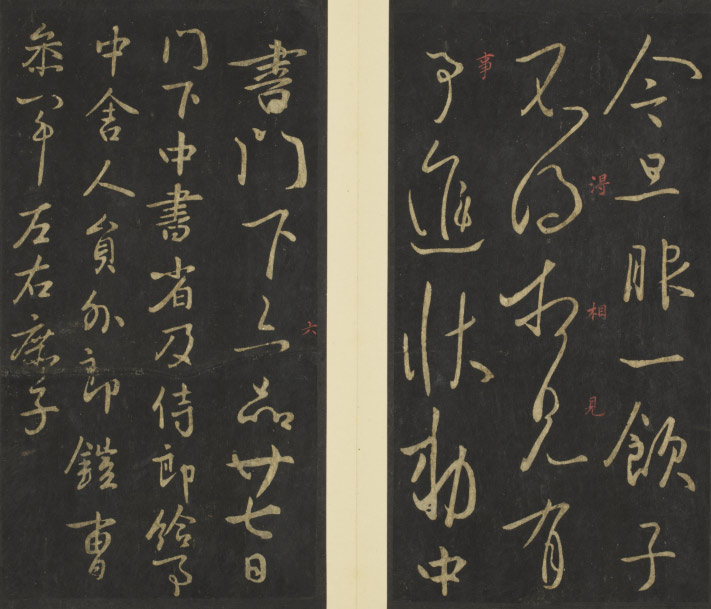 今旦服一飲子
得
相
見
不得相見有
事
事進狀勅中
六
書門下六品廿七日
門下中書省及侍郎給事
中舍人員外郎鎧曹
叅軍左右庶子